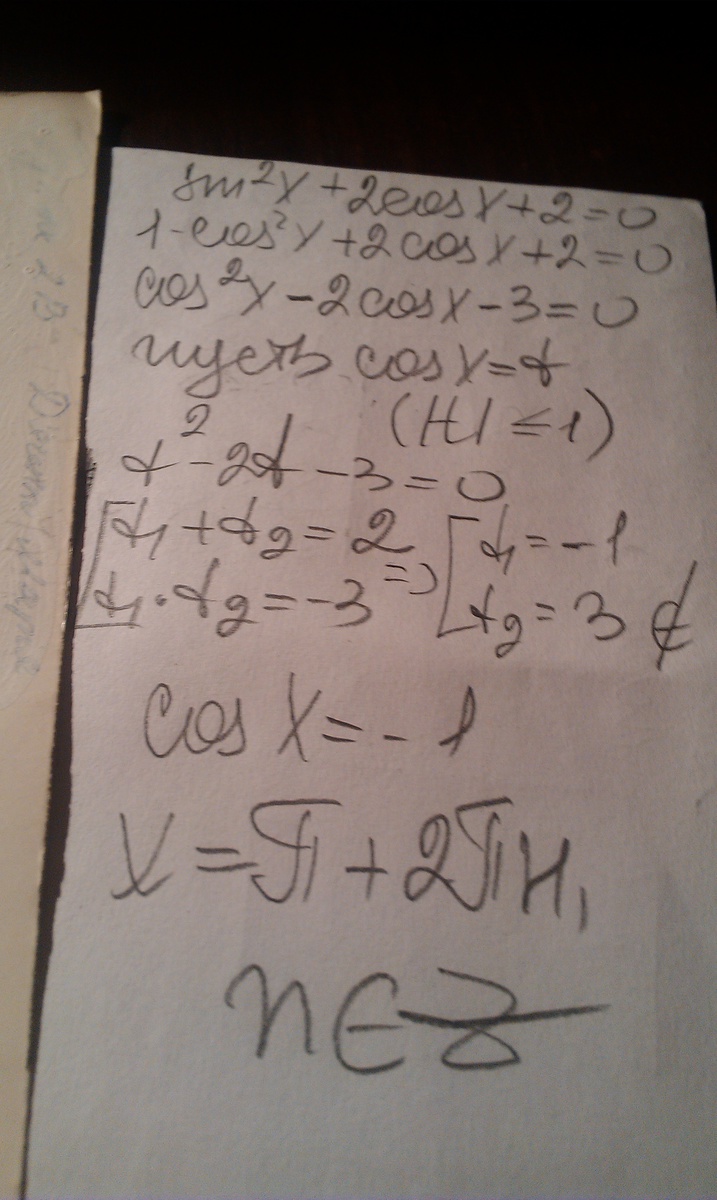 sin²x + 2cosx + 2 = 0
1 - cos²x + 2cosx + 2 = 0
cos²x - 2cosx - 3 = 0
пусть cosx = t
(|t| ≤ 1)
t² - 2t - 3 = 0
[t₁ + t₂ = 2
t₁ · t₂ = -3 => [t₁ = -1
t₂ = 3 ∉
cos x = -1
x = π + 2πn,
n ∈ Z